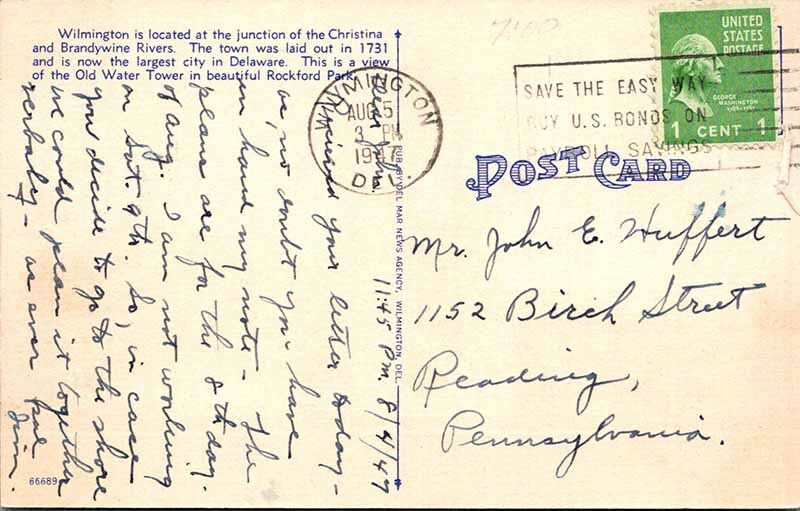 Wilmington is located at the junction of the Christina
and Brandywine Rivers. The town was laid out in 1731
and is now the largest city in Delaware. This is a view
of the Old Water Tower in beautiful Rockford Park.
WILMINGTON
AUG 5
3 PM
DEL.
SAVE THE EASY WAY
BUY U.S. BONDS ON
PAYROLL SAVINGS
UNITED
STATES
POSTAGE
GEORGE
WASHINGTON
1 CENT 1
POST CARD
PUB. BY DEL MAR NEWS AGENCY, WILMINGTON, DEL.
11:45 P.M. 8/4/47
Dear John:
Received your letter today -
as, no doubt you have
in hand my note - The
plans are for the 8th day.
of Aug. I am not working
on Sat. 9th. So, in case
you decide to go to the shore
we could plan it together
verbaly - as ever pal
Jim.
Mr. John E. Huffert
1152 Birch Street
Reading,
Pennsylvania.
66689